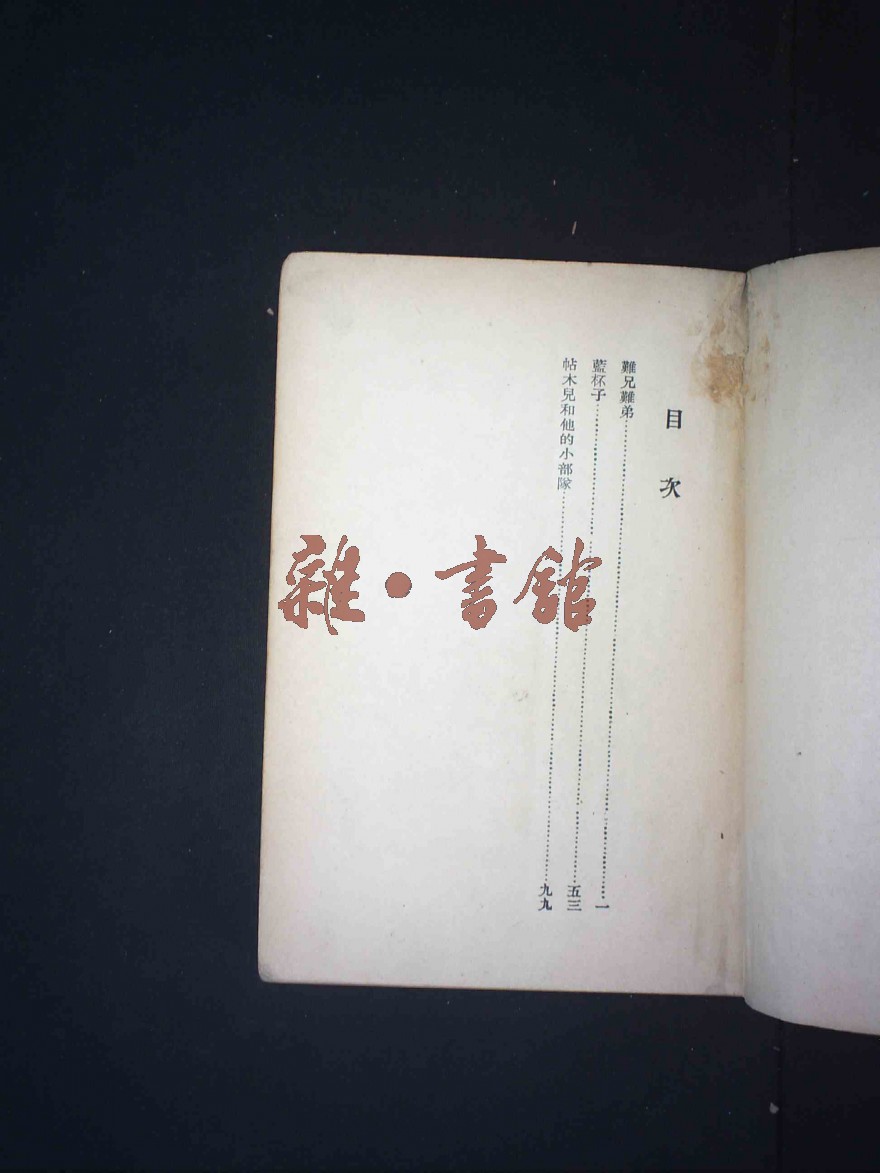 目次
難兄難弟……一
藍杯子……五三
帖木兒和他的小部隊……九九
雜·書館